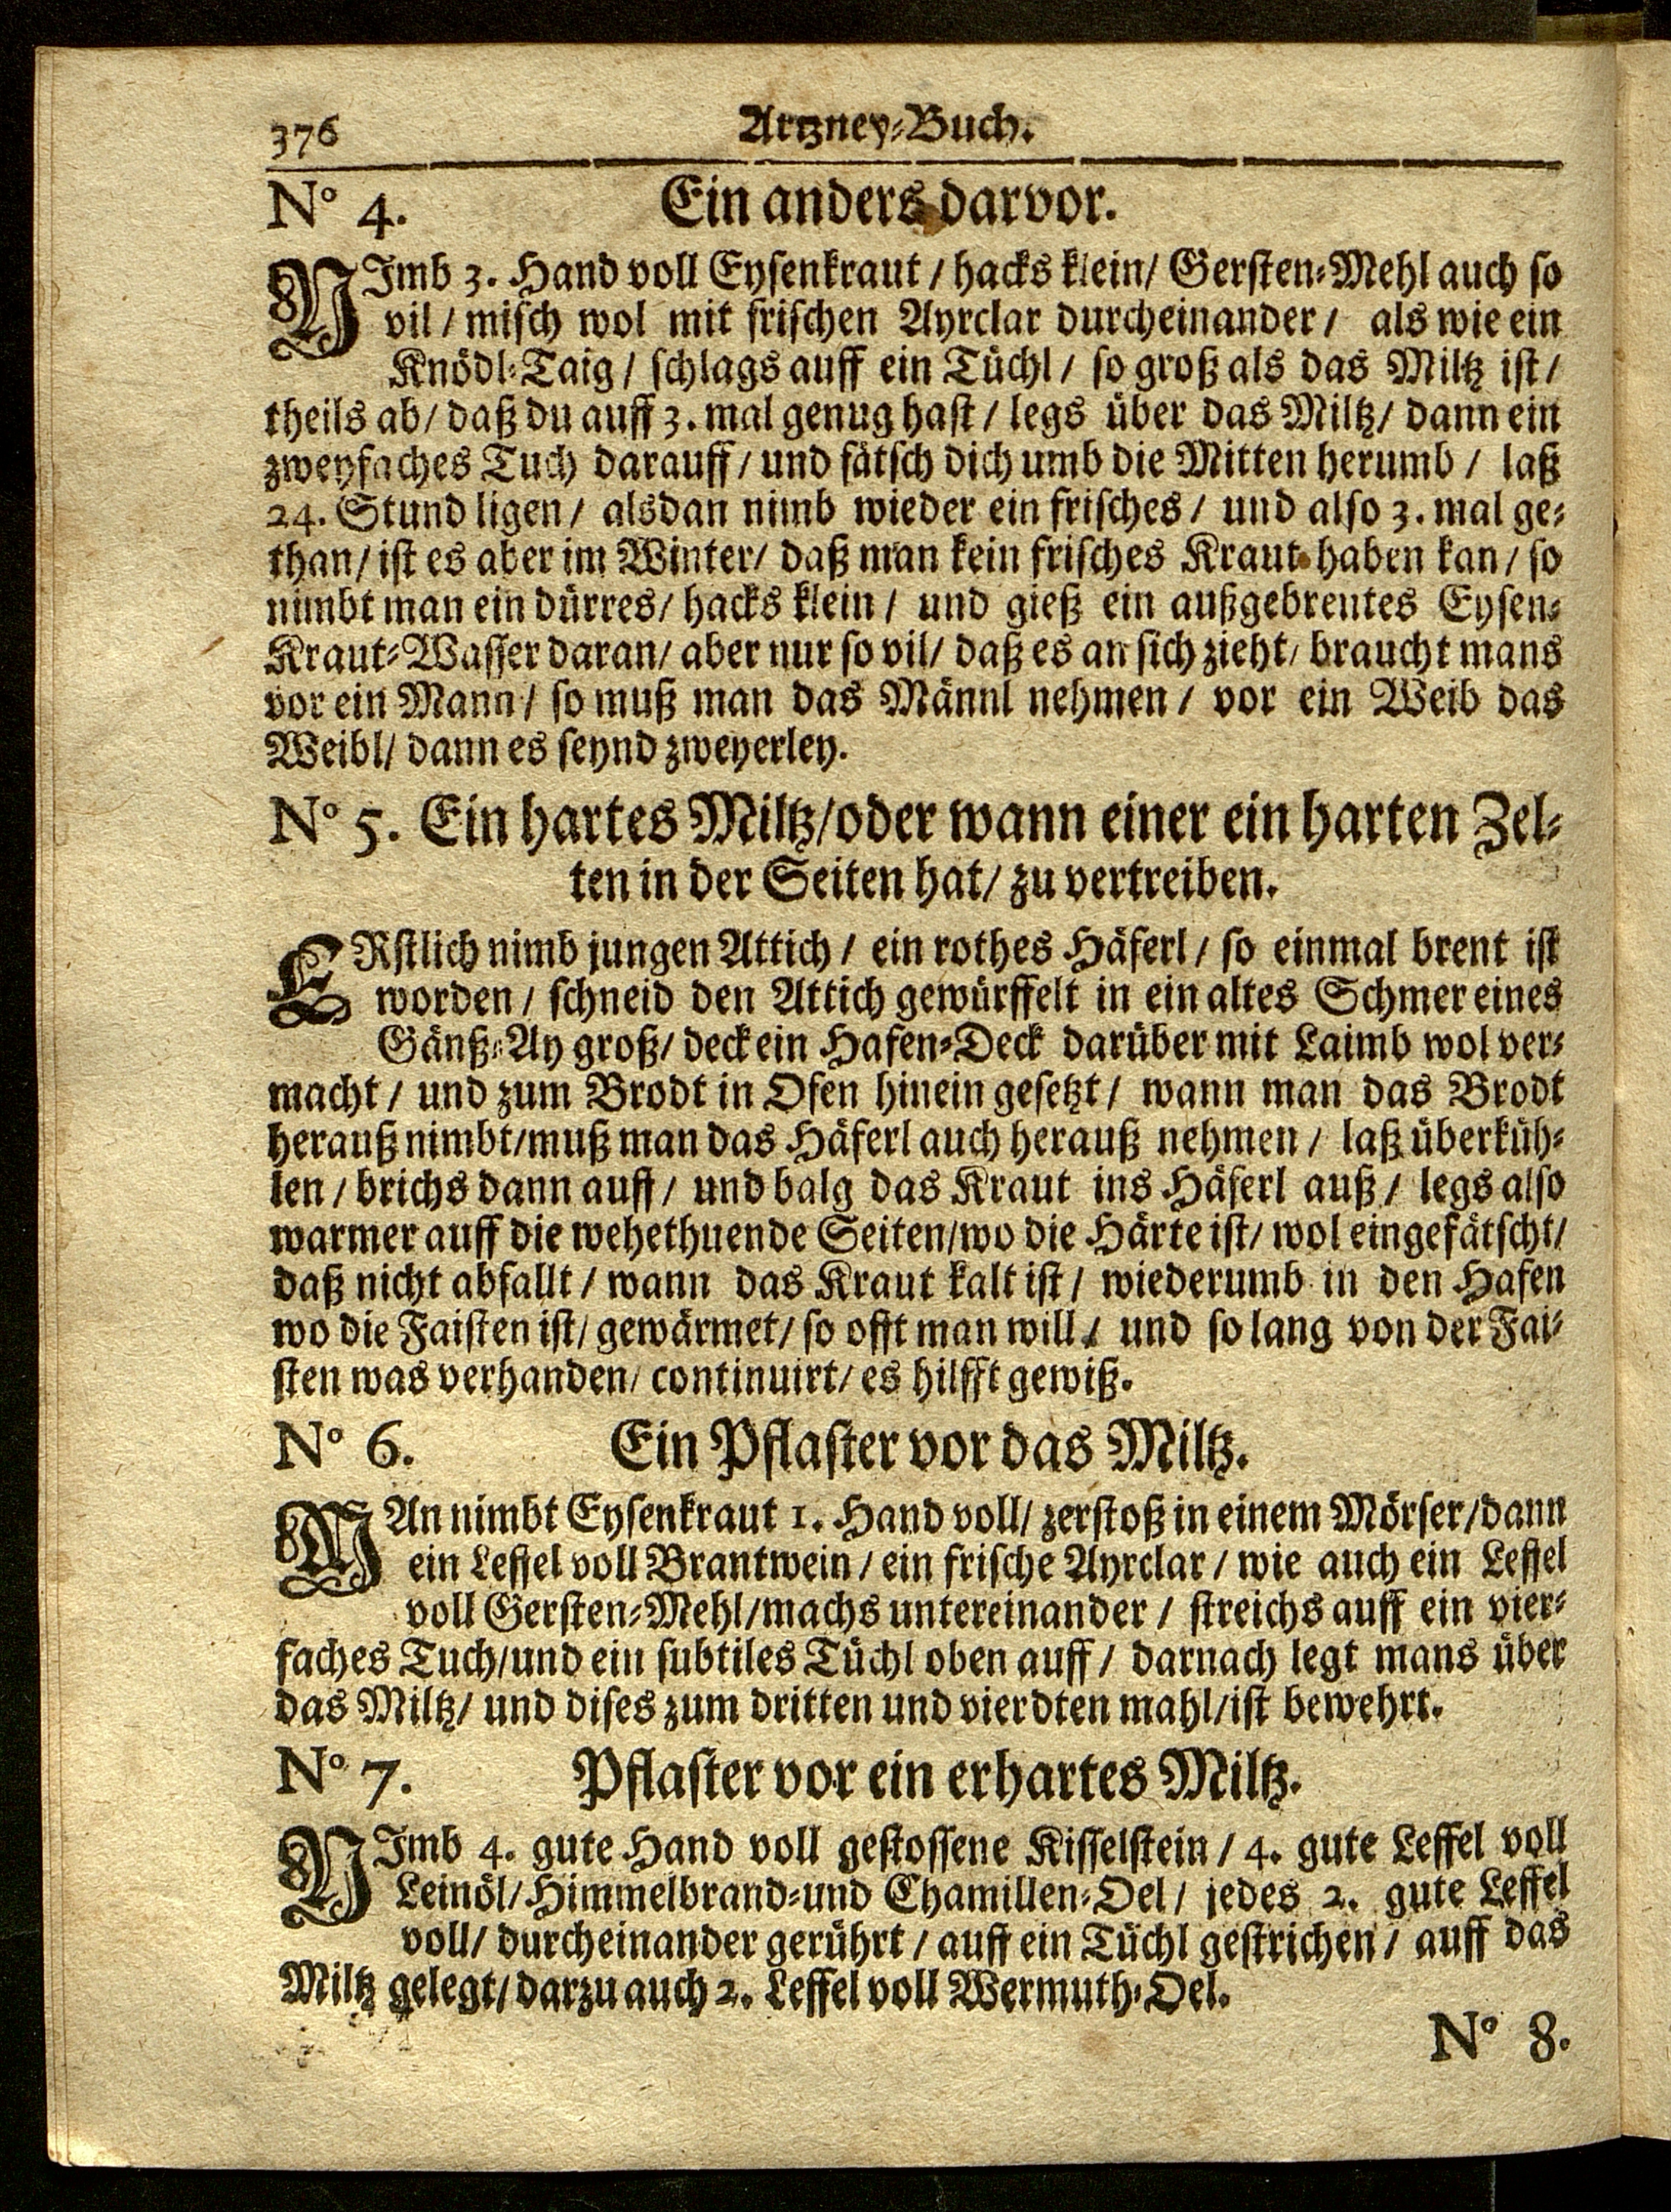 376 Artzney-Buch.
N° 4. Ein anders darvor.
NImb 3. Hand voll Eysenkraut / hacks klein / Gersten-Mehl auch so
vil / misch wol mit frischen Ayrclar durcheinander / als wie ein
Knödl-Taig / schlags auff ein Tüchl / so groß als das Miltz ist /
theils ab / daß du auff 3. mal genug hast / legs über das Miltz / dann ein
zweyfaches Tuch darauff / und fätsch dich umb die Mitten herumb / laß
24. Stund ligen / alsdan nimb wieder ein frisches / und also 3. mal ge-
than / ist es aber im Winter / daß man kein frisches Kraut haben kan / so
nimbt man ein dürres / hacks klein / und gieß ein außgebrentes Eysen-
Kraut-Wasser daran / aber nur so vil / daß es an sich zieht / braucht mans
vor ein Mann / so muß man das Männl nehmen / vor ein Weib das
Weibl / dann es seynd zweyerley.
N° 5. Ein hartes Miltz / oder wann einer ein harten Zel-
ten in der Seiten hat / zu vertreiben.
ERstlich nimb jungen Attich / ein rothes Häferl / so einmal brent ist
worden / schneid den Attich gewürffelt in ein altes Schmer eines
Gänß-Ay groß / deck ein Hafen-Deck darüber mit Laimb wol ver-
macht / und zum Brodt in Ofen hinein gesetzt / wann man das Brodt
herauß nimbt / muß man das Häferl auch herauß nehmen / laß überküh-
len / brichs dann auff / und balg das Kraut ins Häferl auß / legs also
warmer auff die wehethuende Seiten / wo die Härte ist / wol eingefätscht /
daß nicht abfallt / wann das Kraut kalt ist / wiederumb in den Hafen
wo die Faisten ist / gewärmet / so offt man will / und so lang von der Fai-
sten was verhanden / continuirt / es hilfft gewiß.
N° 6. Ein Pflaster vor das Miltz.
MAn nimbt Eysenkraut 1. Hand voll / zerstoß in einem Mörser / dann
ein Leffel voll Brantwein / ein frische Ayrclar / wie auch ein Leffel
voll Gersten-Mehl / machs untereinander / streichs auff ein vier-
faches Tuch / und ein subtiles Tüchl oben auff / darnach legt mans über
das Miltz / und dises zum dritten und vierdten mahl / ist bewehrt.
N° 7. Pflaster vor ein erhartes Miltz.
NImb 4. gute Hand voll gestossene Kisselstein / 4. gute Leffel voll
Leinöl / Himmelbrand-und Chamillen-Oel / jedes 2. gute Leffel
voll / durcheinander gerührt / auff ein Tüchl gestrichen / auff das
Miltz gelegt / darzu auch 2. Leffel voll Wermuth-Oel.
N° 8.